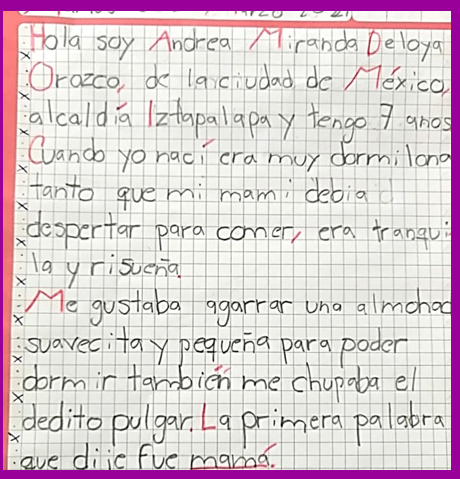 Hola soy Andrea Miranda Deloya
Orozco, de la ciudad de México,
alcaldía Iztapalapa y tengo 7 años
Cuando yo nací era muy dormilona
tanto que mi mami debia
despertar para comer, era tranqui
la y risueña.
Me gustaba agarrar una almohad
suavecita y pequeña para poder
dormir también me chupaba el
dedito pulgar. La primera palabra
que dije fue mamá.